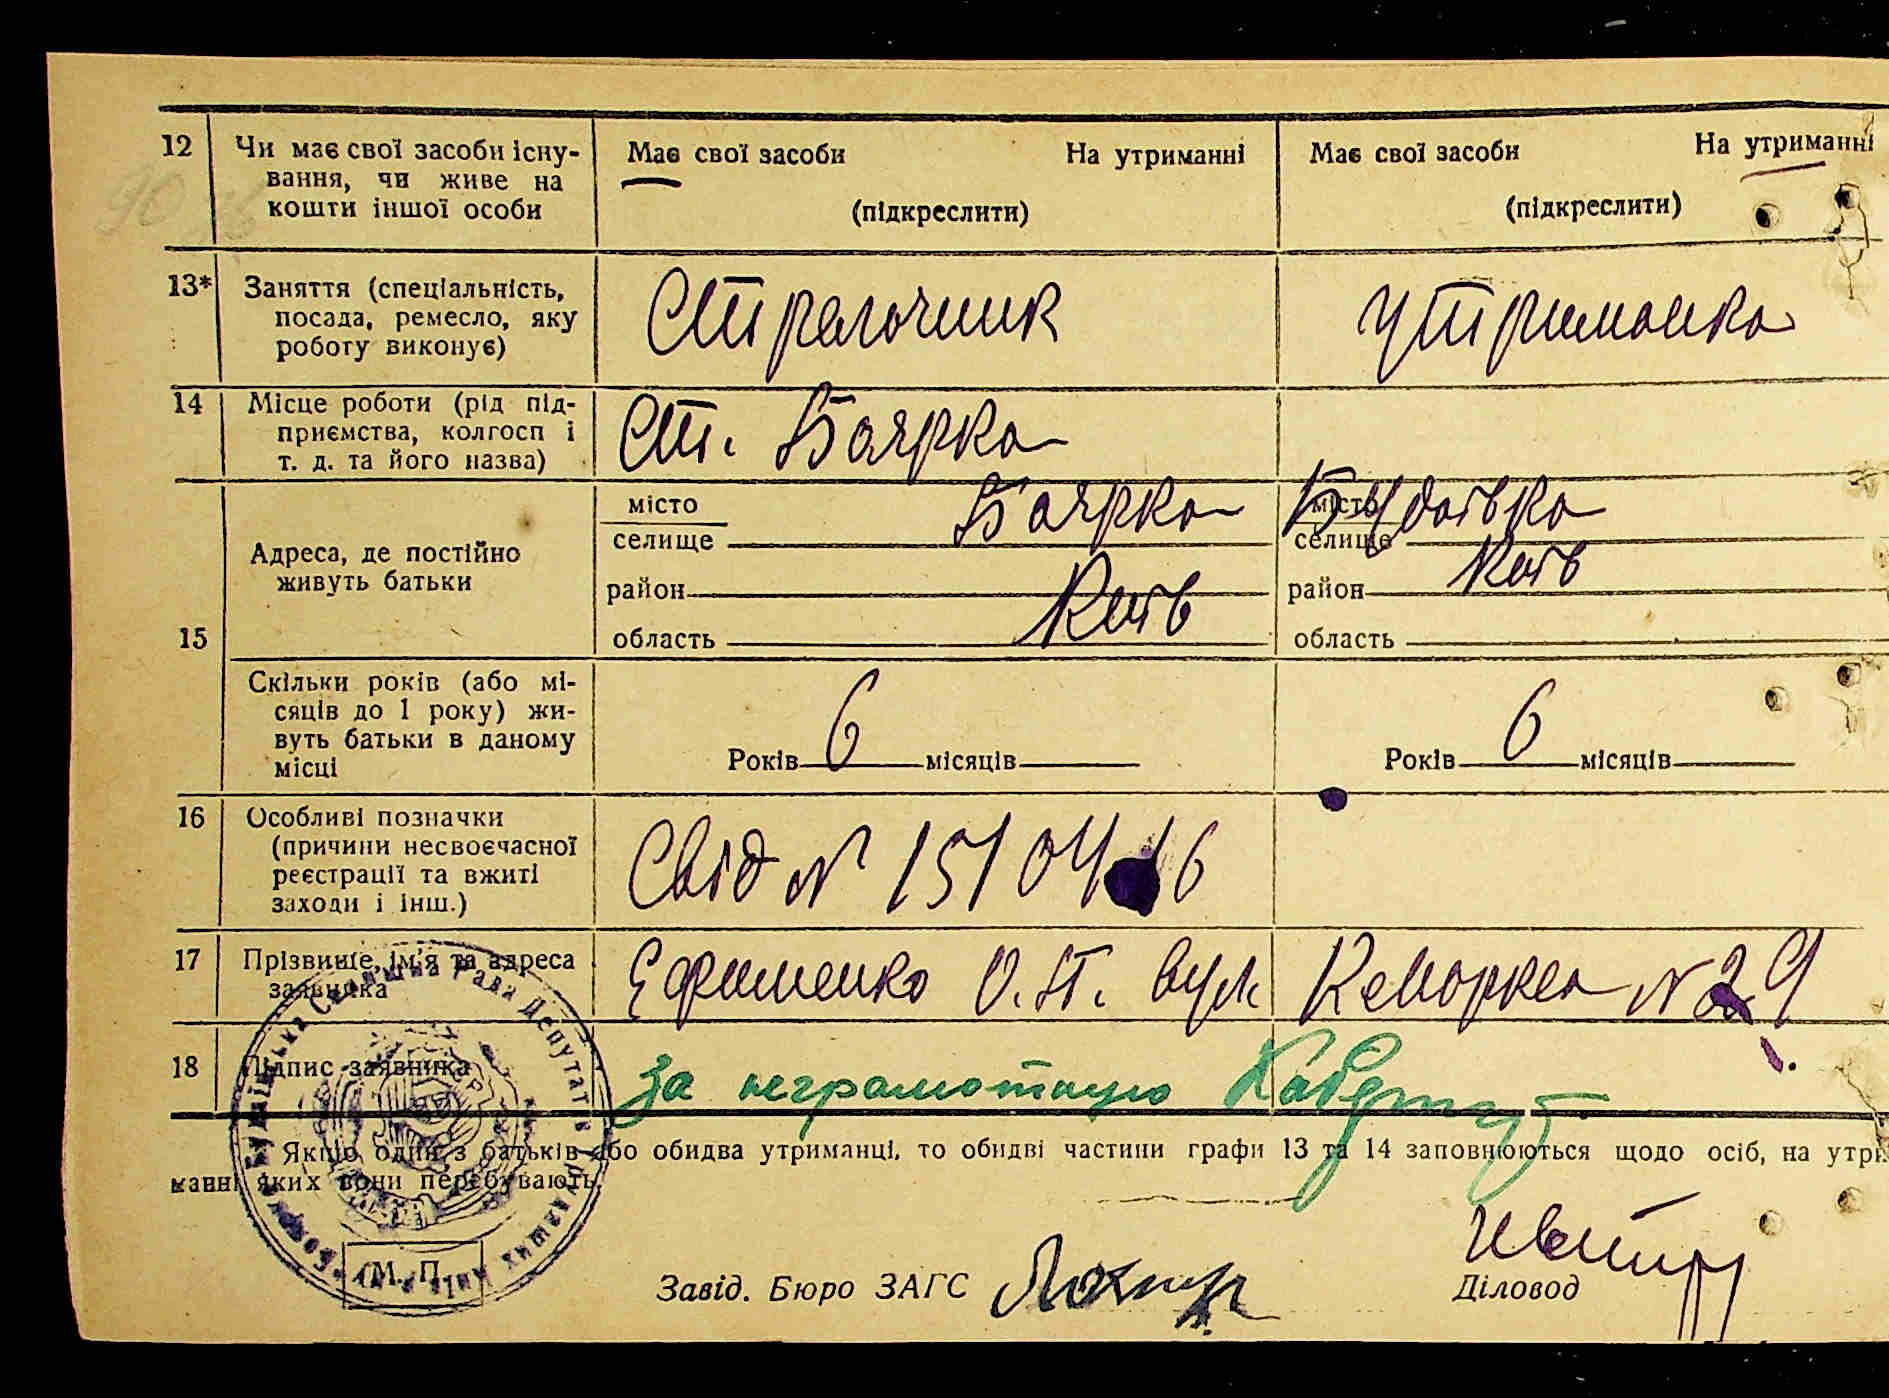 12
Чи має свої засоби існу-
вання, чи живе на
кошти іншої особи
Має свої засоби На утриманні
(підкреслити)
Має свої засоби На утриманні
(підкреслити)
13*
Заняття (спеціальність,
посада, ремесло, яку
роботу виконує)
Стрелочник
Утриманка
14
Місце роботи (рід під-
приємства, колгосп і
т. д. та його назва)
Ст. Боярка
15
Адреса, де постійно
живуть батьки
місто
селище Боярка
район
область Київ
місто
селище
район Київ
область
Скільки років (або мі-
сяців до 1 року) жи-
вуть батьки в даному
місці
Років 6 місяців
Років 6 місяців
16
Особливі позначки
(причини несвоєчасної
реєстрації та вжиті
заходи і інш.)
Свід №
17
Прізвище, ім'я та адреса
заявника
Ефименко О.П. вул
18
Підпис заявника
за неграмотную
Якщо один з батьків або обидва утриманці, то обидві частини графи 13 та 14 заповнюються щодо осіб, на утри
манні яких вони перебувають.
М. П.
Завід. Бюро ЗАГС
Діловод